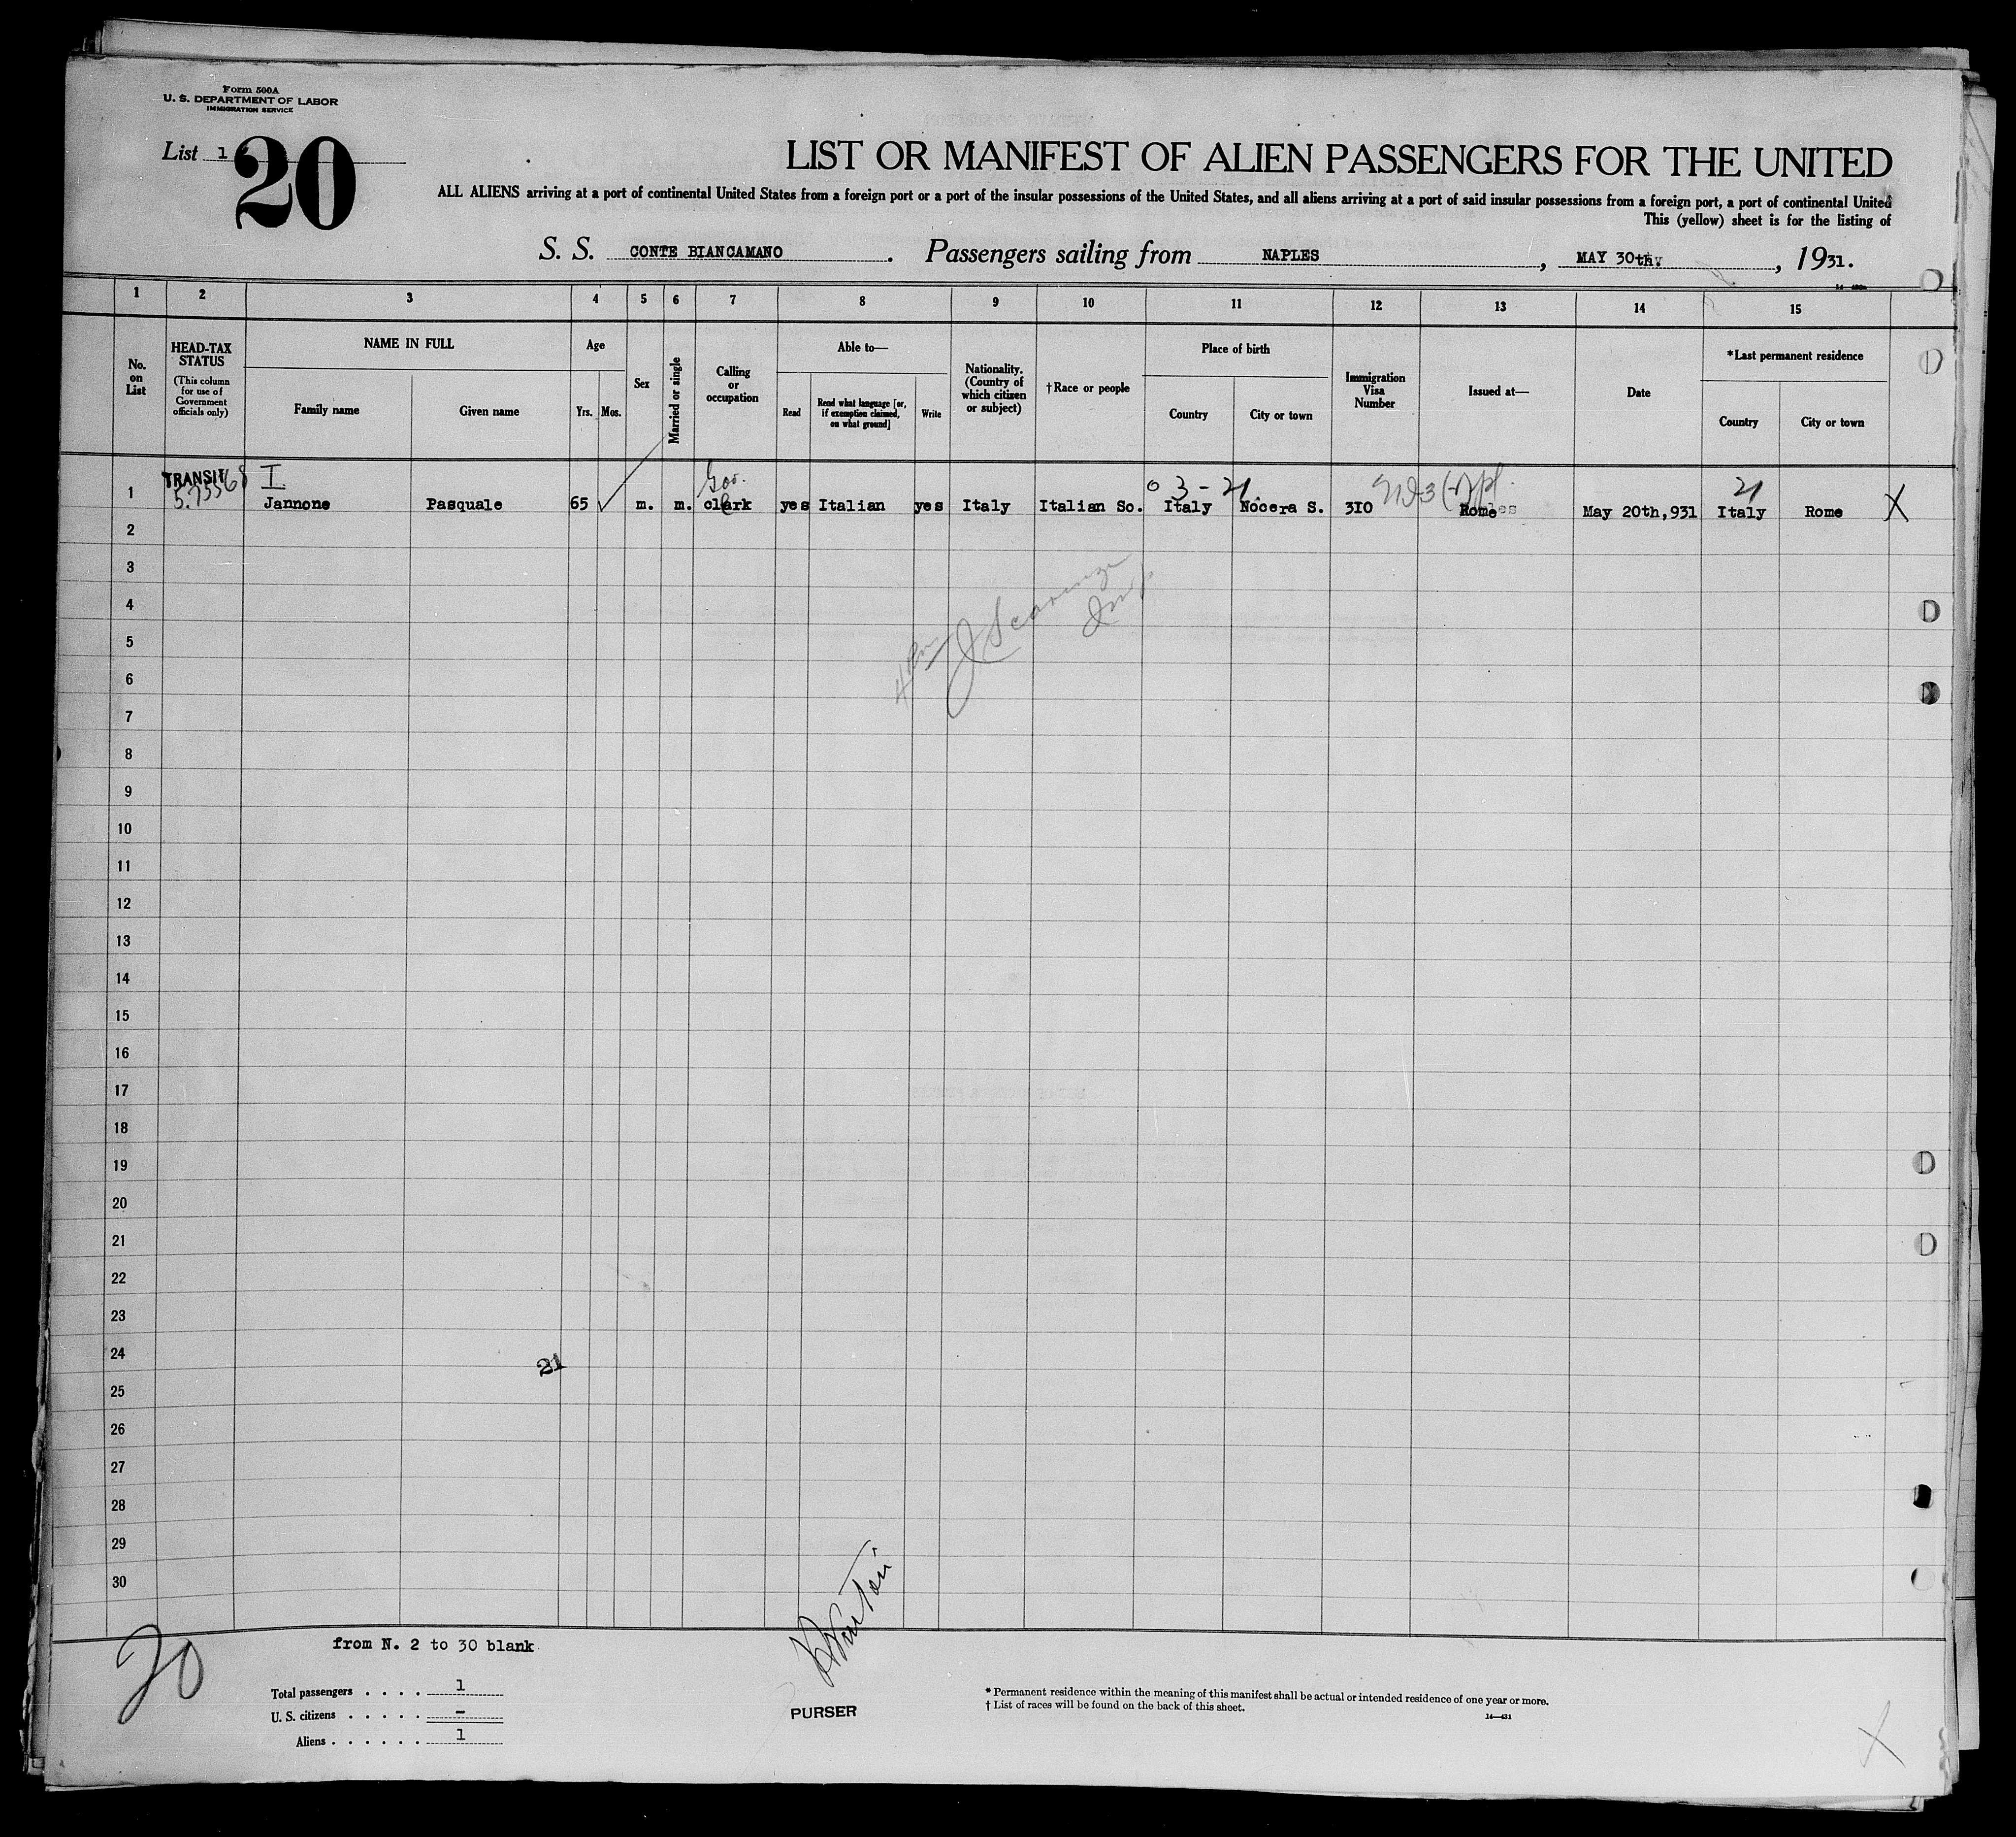 Form 500A
U. S. DEPARTMENT OF LABOR
IMMIGRATION SERVICE
List 1
20
LIST OR MANIFEST OF ALIEN PASSENGERS FOR THE UNITED
ALL ALIENS arriving at a port of continental United States from a foreign port or a port of the insular possessions of the United States, and all aliens arriving at a port of said insular possessions from a foreign port, a port of continental United
This (yellow) sheet is for the listing of
S. S. CONTE BIANCAMANO. Passengers sailing from NAPLES, MAY 30th, 1931.
1 2 3 4 5 6 7 8 9 10 11 12 13 14 15
No. on List
HEAD-TAX STATUS
(This column for use of Government officials only)
NAME IN FULL
Family name
Given name
Age
Yrs. Mos.
Sex
Married or single
Calling or occupation
Able to—
Read
Read what language [or, if exemption claimed, on what ground]
Write
Nationality. (Country of which citizen or subject)
†Race or people
Place of birth
Country
City or town
Immigration Visa Number
Issued at—
Date
*Last permanent residence
Country
City or town
TRANSIT I Gov. 3 - 21 21
1 Jannone Pasquale 65 m. m. clerk yes Italian yes Italy Italian So. Italy Nocera S. 310 Rome May 20th,931 Italy Rome X
2
3
4
5
6
7
8
9
10
11
12
13
14
15
16
17
18
19
20
21
22
23
24
21
25
26
27
28
29
30
20
from N. 2 to 30 blank
Total passengers . . . . 1
U. S. citizens . . . . . -
Aliens . . . . . . 1
PURSER
* Permanent residence within the meaning of this manifest shall be actual or intended residence of one year or more.
† List of races will be found on the back of this sheet.
14—431
X